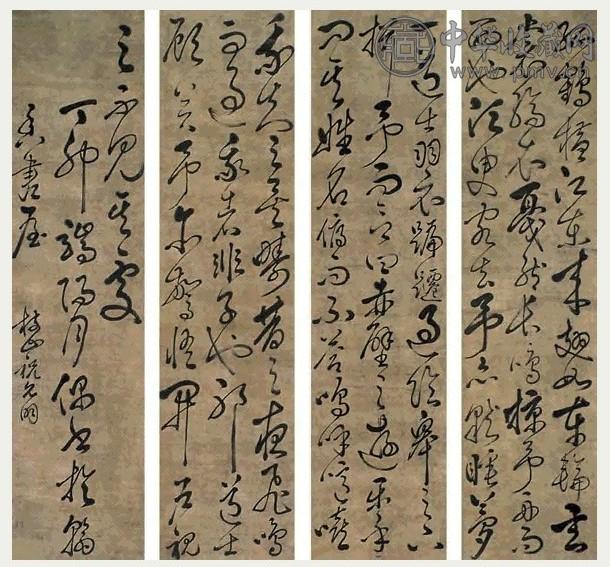 孤鶴橫江東來翅如車輪玄
裳縞衣戛然長鳴掠予舟而
西也須臾客去予亦就睡夢
一道士羽衣蹁躚過臨皋之下
揖予而言曰赤壁之遊樂乎
問其姓名俯而不答嗚呼噫嘻
我知之矣疇昔之夜飛鳴
而過我者非子也耶道士
顧笑予亦驚悟開戶視
之不見其處
丁卯端陽月偶書於翰
香書屋
枝山祝允明
中华收藏网
www.pmv.cn